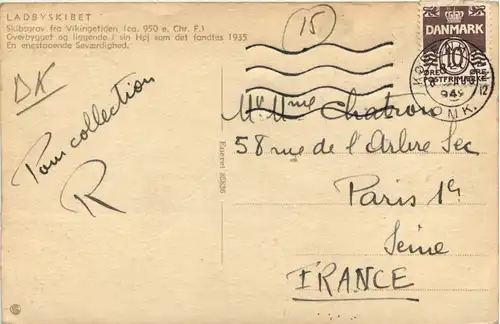 LADBYSKIBET
Skibsgrav fra Vikingetiden (ca. 950 e. Chr. F.)
Overbygget og liggende i sin Høj som det fandtes 1935
En enestaaende Seværdighed.
15
DK
Pour collection
R
Eneret 83836
DANMARK
10
ØRE ØRE
POSTFRIMÆRKE
12
OMK.
Mr Mme Chatron
58 rue de l'Arbre Sec
Paris 1er
Seine
FRANCE